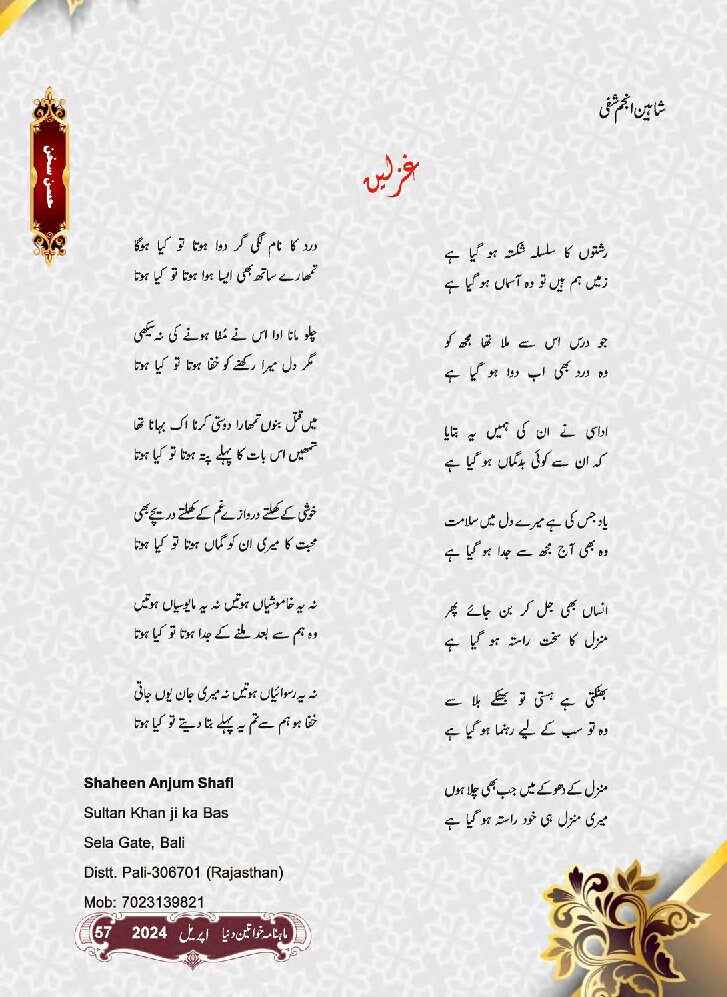 شاہین انجم شفی
حسن سخن
غزلیں
رشتوں کا سلسلہ شکستہ ہو گیا ہے
زمیں ہم ہیں تو وہ آسماں ہو گیا ہے
جو درس اس سے ملا تھا مجھ کو
وہ درد بھی اب دوا ہو گیا ہے
اداسی نے ان کی ہمیں یہ بتایا
کہ ان سے کوئی بدگماں ہو گیا ہے
یاد جس کی ہے میرے دل میں سلامت
وہ بھی آج مجھ سے جدا ہو گیا ہے
انساں بھی جل کر بن جائے پھر
منزل کا سخت راستہ ہو گیا ہے
بھٹکتی ہے ہستی تو بھٹکے بلا سے
وہ تو سب کے لیے رہنما ہو گیا ہے
منزل کے دھوکے میں جب بھی چلا ہوں
میری منزل ہی خود راستہ ہو گیا ہے
درد کا نام لگی گر دوا ہوتا تو کیا ہوگا
تمھارے ساتھ بھی ایسا ہوا ہوتا تو کیا ہوتا
چلو مانا ادا اس نے خفا ہونے کی نہ سیکھی
مگر دل میرا رکھنے کو خفا ہوتا تو کیا ہوتا
میں قتل بنوں تمھارا دوستی کرنا اک بہانا تھا
تمھیں اس بات کا پہلے پتہ ہوتا تو کیا ہوتا
خوشی کے کھلتے دروازے غم کے کھلتے دریچے بھی
محبت کا میری ان کو گماں ہوتا تو کیا ہوتا
نہ یہ خاموشیاں ہوتیں نہ یہ مایوسیاں ہوتیں
وہ ہم سے بعد ملنے کے جدا ہوتا تو کیا ہوتا
نہ یہ رسوائیاں ہوتیں نہ میری جان یوں جاتی
خفا ہو ہم سے تم یہ پہلے بتا دیتے تو کیا ہوتا
Shaheen Anjum Shafi
Sultan Khan ji ka Bas
Sela Gate, Bali
Distt. Pali-306701 (Rajasthan)
Mob: 7023139821
ماہنامہ خواتین دنیا اپریل 2024 57